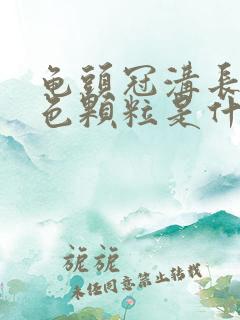 龟頭冠溝長
色顆粒是什
旎旎
未经同意禁止转载